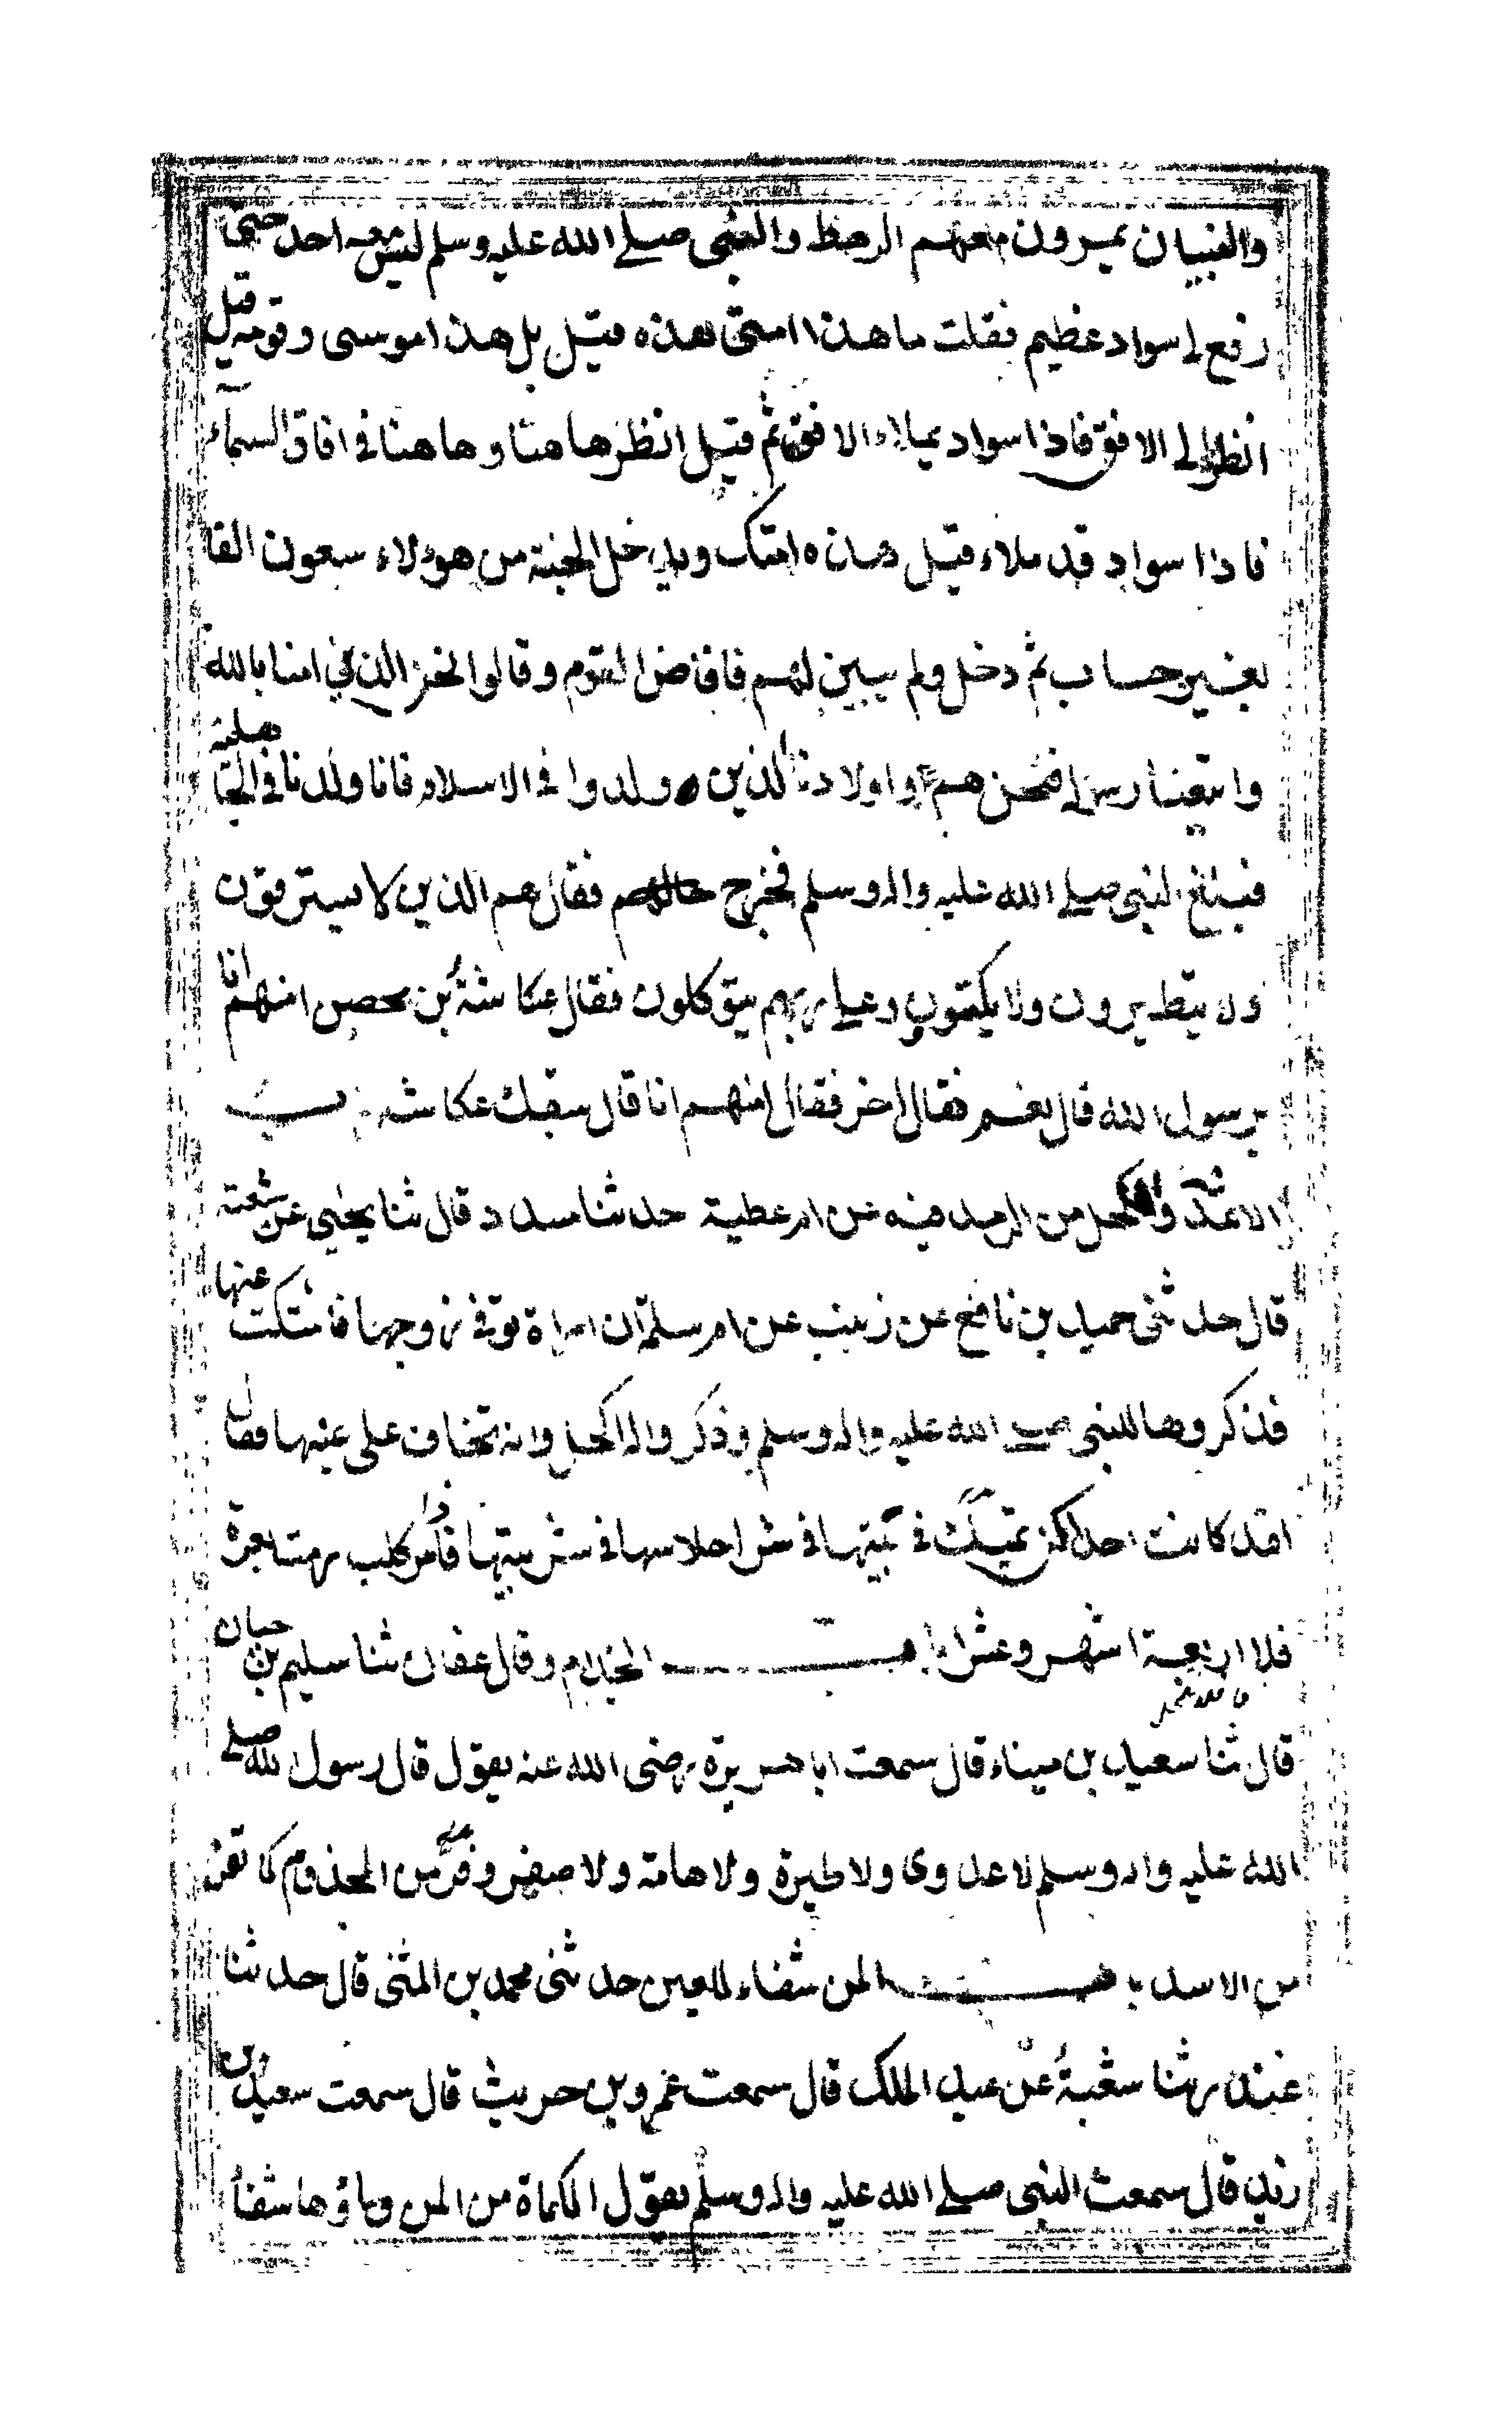 والنبيان يمرون معهم الرهط والنبي صلى الله عليه وسلم ليس معه احد حتى
رفع لى سواد عظيم فقلت ما هذا امتى هذه قيل بل هذا موسى وقومه قيل
انظر الى الافق فاذا سواد يملاء الافق ثم قيل انظر ها هنا وها هنا فى افاق السمآء
فاذا سواد قد ملاء قيل هذه امتك ويدخل الجنة من هؤلاء سبعون الفا
بغير حساب ثم دخل ولم يبين لهم فافاض القوم وقالوا نحن الذين امنا بالله
واتبعنا رسوله فنحن هم او اولادنا الذين ولدوا فى الاسلام فانا ولدنا فى الجاهلية
فبلغ النبى صلى الله عليه واله وسلم فخرج فقال هم الذين لا يسترقون
ولا يتطيرون ولا يكتوون وعلى ربهم يتوكلون فقال عكاشةُ بن محصن امنهم انا
يرسول الله قال نعم فقال اخر فقال امنهم انا قال سبقك عكاشه باب
الاثمد والكحل من الرمد فيه عن ام عطية حدثنا مسدد قال ثنا يحيى عن شعبة
قال حدثنى حميد بن نافع عن زينب عن ام سلمة ان امراة توفى زوجها فاشتكت عينها
فذكروها للنبى صلى الله عليه واله وسلم وذكروا له الكحل وانه تخاف على عينها فقال
لقد كانت احداكن تمكث فى بيتها فى شر احلاسها فى شر بيتها فاذا مر كلب رمت بعرة
فلا اربعة اشهر وعشرا باب الجذام وقال عفان ثنا سليم بن حيان
قال ثنا سعيد بن ميناء قال سمعت ابا هريرة رضى الله عنه يقول قال رسول الله صلى
الله عليه واله وسلم لا عدوى ولا طيرة ولا هامة ولا صفر وفر من المجذوم كما تفر
من الاسد باب المن شفاء للعين حدثنى محمد بن المثنى قال حدثنا
غندر ثنا شعبةُ عن عبد الملك قال سمعت عمرو بن حريث قال سمعت سعيد بن
زيد قال سمعت النبى صلى الله عليه واله وسلم يقول الكماة من المن وماؤها شفاء